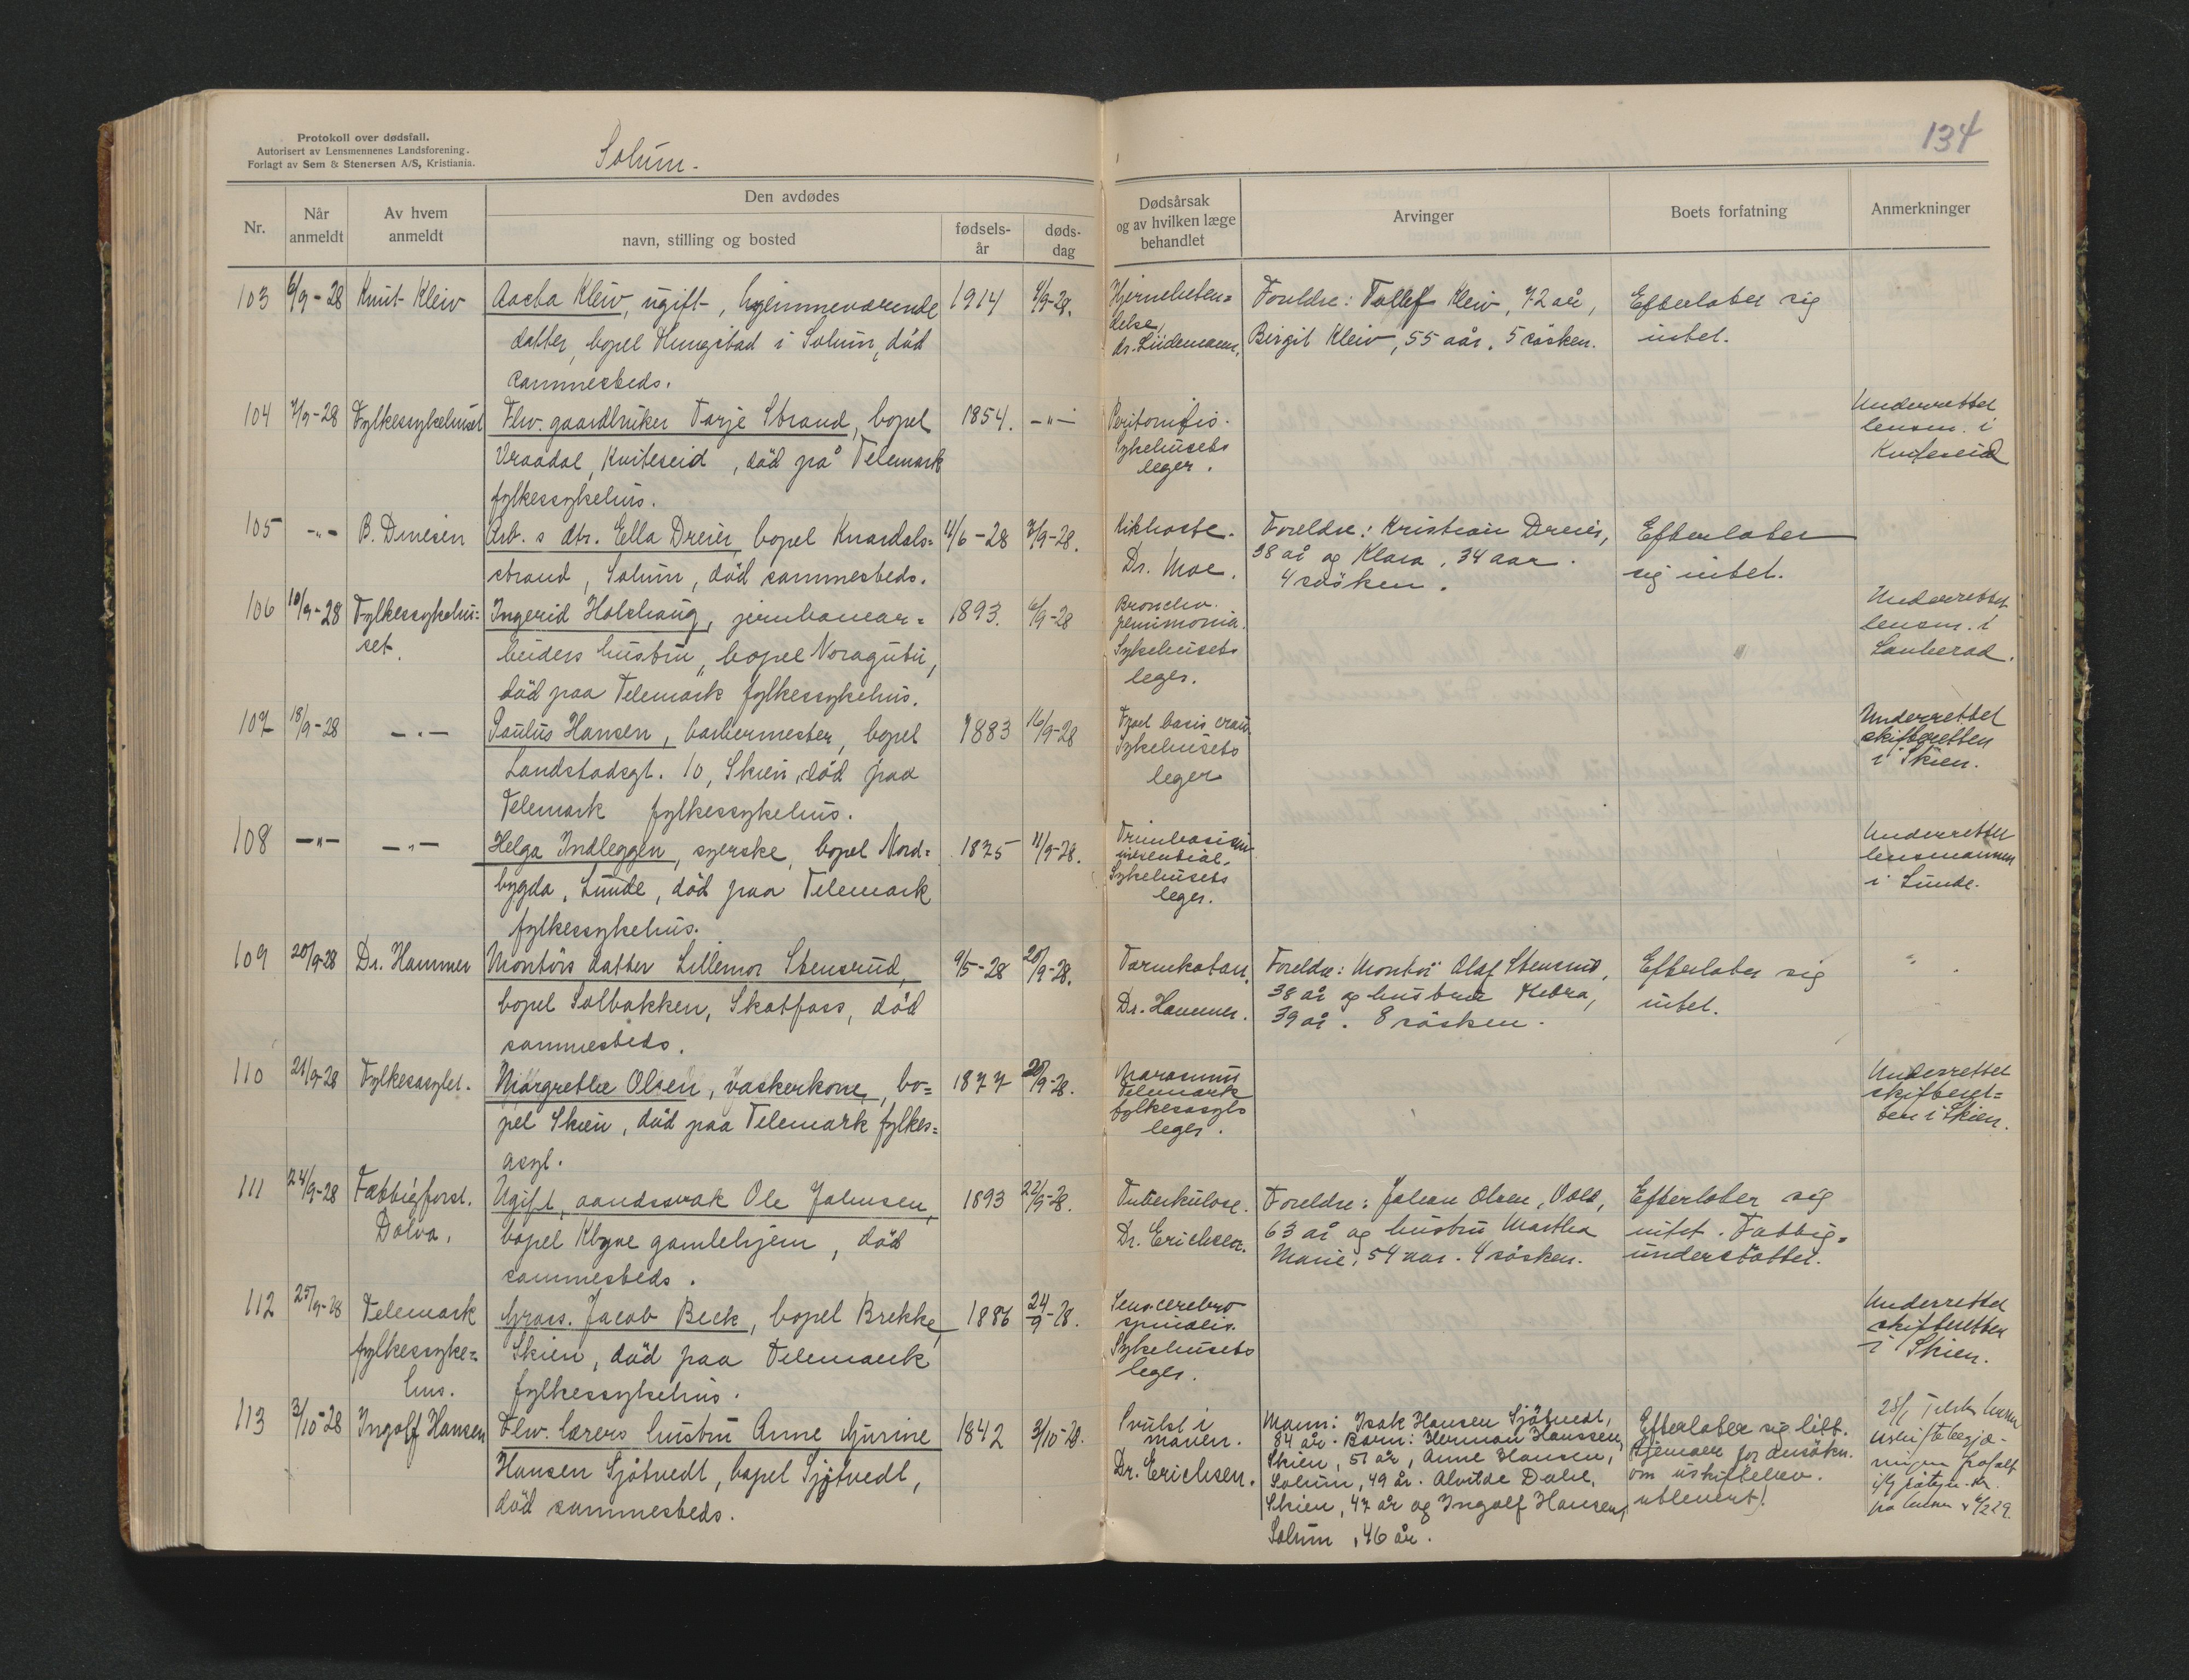 Protokoll over dødsfall.
Autorisert av Lensmennenes Landsforening.
Forlagt av Sem & Stenersen A/S, Kristiania.
Solum.
134
Nr.
Når anmeldt
Av hvem anmeldt
Den avdødes
navn, stilling og bosted
fødsels-år
døds-dag
Dødsårsak og av hvilken læge behandlet
Arvinger
Boets forfatning
Anmerkninger
103 6/9-28 Knut Kleiv Aasta Kleiv, ugift, hjemmeværende 1914 4/9-28.
datter, bopel i Solum, død
sammesteds.
Hjernebeten=
delse,
dr. Lüdemann.
Foreldre: Tallef Kleiv, 72 år,
Birgit Kleiv, 55 aar. 5 søsken.
Efterlater sig
intet.
104 7/9-28 Fylkessykehuset Flw. gaardbruker Tarje Strand, bopel 1854. -"-
Vraadal, Kviteseid, død på Telemark
fylkessykehus.
Peritonitis.
Sykehusets
leger.
Underrettet
lensm. i
Kviteseid
105 -"- B. Arb. s dtr. Ella Dreier, bopel Knardals= 11/6-28 7/9-28.
strand, Solum, död sammesteds.
Kikhoste.
Dr. Moe.
Foreldre: Kristian Dreier,
38 år og Klara, 34 aar.
4 søsken.
Efterlater
sig intet.
106 10/9-28 Fylkessykehu=
set.
Ingerid Holshaug, jernbanear= 1893. 6/9-28
beiders hustru, bopel Noragutu,
död paa Telemark fylkessykehus.
Broncho.
pneumonia.
Sykehusets
leger.
Underrettet
lensm. i
Sauherad.
107 18/9-28 -"- Paulus Hansen, barbermester, bopel 1883 16/9-28
Landstadsgt. 10, Skien, död paa
Telemark fylkessykehus.
basis
Sykehusets
leger
Underrettet
skifteretten
i Skien.
108 -"- -"- Helga Indleggen, syerske, bopel Nord= 1875 11/9-28.
bygda, Lunde, död paa Telemark
fylkessykehus.
Sykehusets
leger.
Underrettet
lensmannen
i Lunde.
109 20/9-28 Dr. Hammer Montörs datter Lillemor Stensrud, 9/5-28 20/9-28.
bopel Solbakken, Skotfoss, död
sammesteds.
Tarmkatarr.
Dr. Hammer.
Foreldre: Montör Olaf Stensrud,
38 år og hustru
39 år. 8 søsken.
Efterlater sig
intet.
110 21/9-28 Fylkesasylet. Margrethe Olsen, vaskerkone, bo= 1877 20/9-28.
pel Skien, död paa Telemark fylkes=
asyl.
Marasmus
Telemark
fylkesasyls
leger.
Underrettet
skifteret=
ten i Skien.
111 24/9-28 Fattigforst.
Dolva.
Ugift, aandssvak Ole Johnsen, 1893 22/9-28.
bopel Klyve gamlehjem, död
sammesteds.
Tuberkulose.
Dr. Erichsen.
Foreldre: Johan Olsen,
63 år og hustru Martha
Marie, 54 aar. 4 søsken.
Efterlater sig
intet. Fattig=
understøttet.
112 25/9-28 Telemark
fylkessyke=
hus.
Gross. Jacob Beck, bopel Brekke, 1886 24/9-28.
Skien, död paa Telemark
fylkessykehus.
cerebro
spinalis.
Sykehusets
leger.
Underrettet
skifteretten
i Skien.
113 3/10-28 Ingolf Hansen Flw. lærers hustru Anne Gurine 1842 3/10-28.
Hansen Sjøtvedt, bopel Sjøtvedt,
död sammesteds.
Svulst i
maven.
Dr. Erichsen.
Mann: Isak Hansen Sjøtvedt,
84 år. Barn: Herman Hanssen,
Skien, 51 år, Anne Hansen,
Solum, 49 år. Alvilde Dahl,
Skien, 47 år og Ingolf Hansen,
Solum, 46 år.
Efterlater sig litt.
for ansökn.
om uskiftebev.
utlevert.